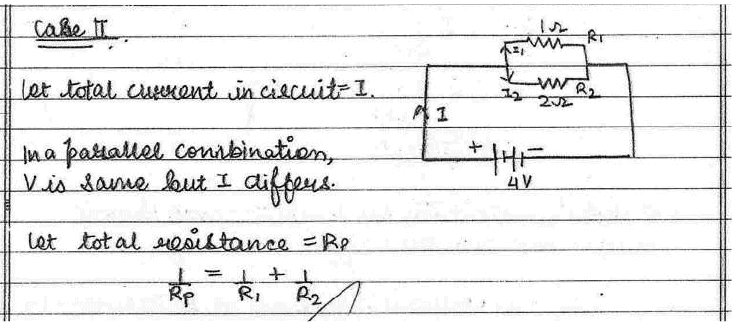 Case II.
1Ω R1
I1
Let total current in circuit = I.
I2 2Ω R2
I
In a parallel combination,
+ -
V is same but I differs.
4V
Let total resistance = Rp
1/Rp = 1/R1 + 1/R2